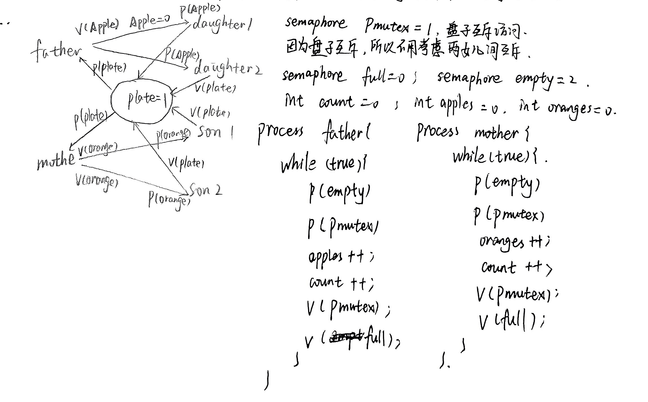 V(Apple)
Apple=0
P(Apple)
daughter1
father
P(Apple)
daughter2
p(plate)
plate=1
V(plate)
p(plate)
V(plate)
p(orange)
Son 1
mothe
V(orange)
V(orange)
V(plate)
P(orange)
Son 2
semaphore Pmutex=1, 盘子互斥访问.
因为盘子互斥,所以不用考虑两女儿间互斥.
semaphore full=0; semaphore empty=2.
int count=0; int apples=0. int oranges=0.
process father{
while(true){
p(empty)
p(Pmutex)
apples++;
count++;
V(Pmutex);
V(full);
}
}
Process mother{
while(true){.
p(empty)
p(pmutex)
oranges++;
count++;
V(pmutex);
V(full);
}
}.